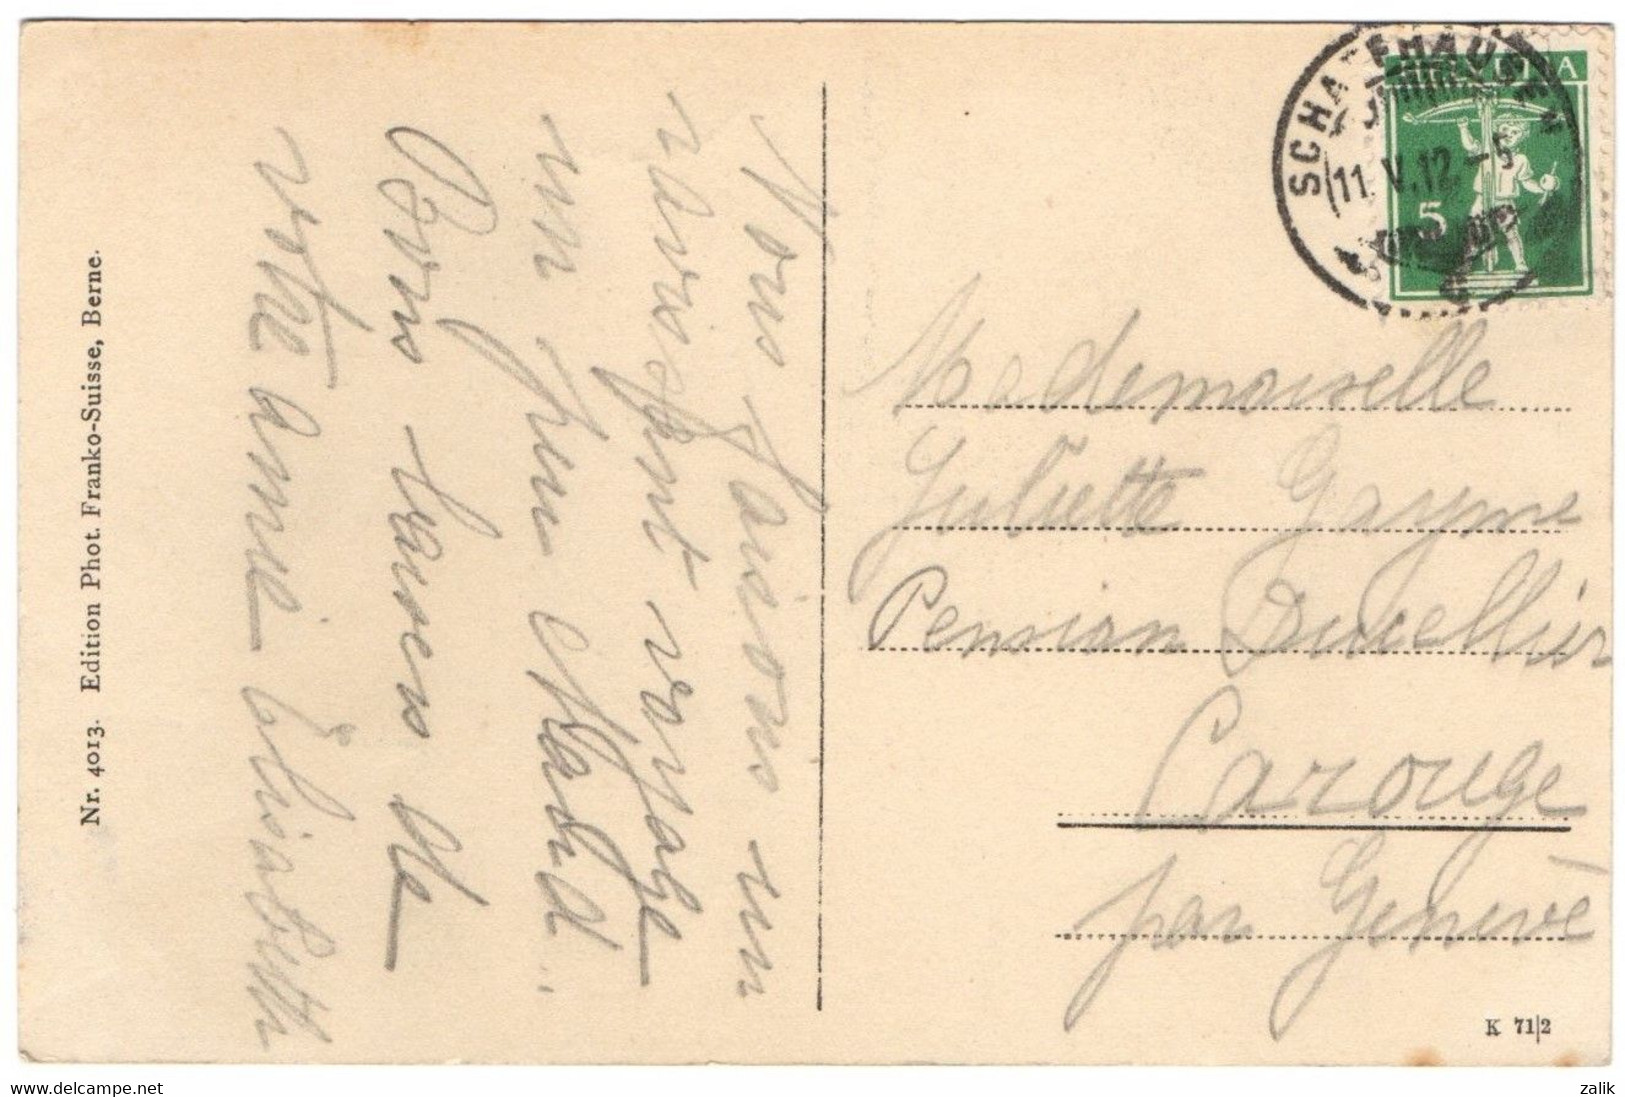 Nous faisons un
ravissant voyage
un peu
Bons baisers de
votre amie Élisabeth
Nr. 4013. Edition Phot. Franko-Suisse, Berne.
SCHAFFHAUSEN
11. V. 12.-5
HELVETIA
5
Mademoiselle
Juliette Gayme
Pension Ducellier
Carouge
par Genève
K 71|2
zalik